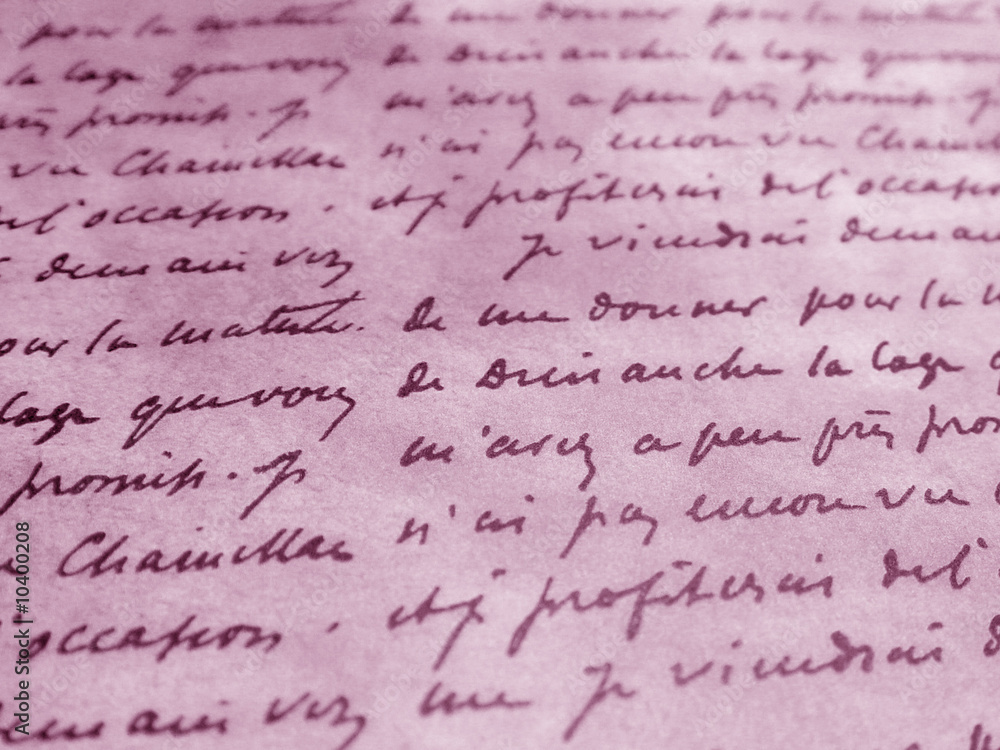 pour la matinée de me donner pour la matinée
la loge que vous de Dimanche la loge que vous
près promise. Je m'avez a peu près promise. Je
vu Chamillac n'ai pas encore vu Chamillac
de l'occasion. et je profiterais de l'occasion
demain Je viendrais demain
pour la matinée. de me donner pour la
loge que vous de Dimanche la loge
promise. Je m'avez a peu près
Chamillac n'ai pas encore vu
l'occasion. et je profiterais de l'
demain me Je viendrais
Adobe Stock | #10400208